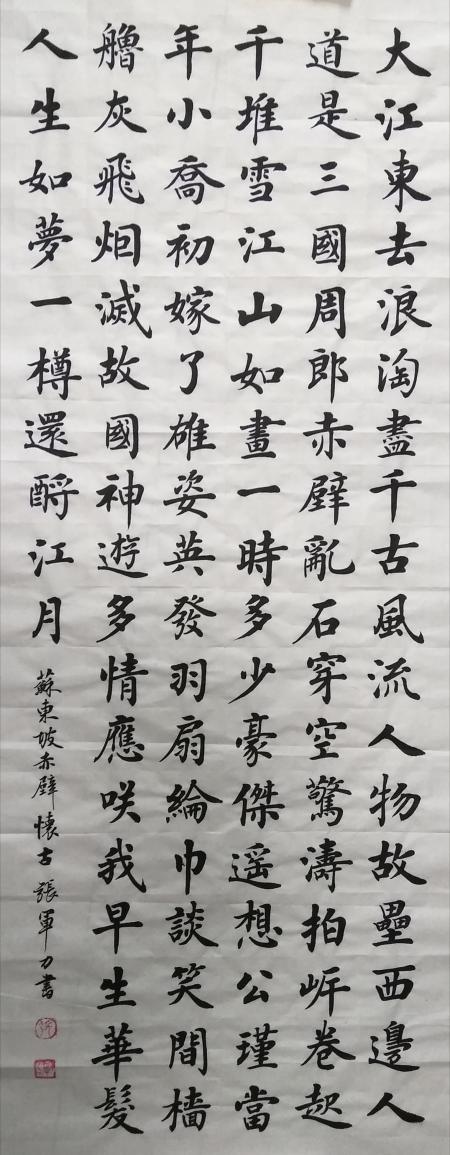 大江東去浪淘盡千古風流人物故壘西邊人
道是三國周郎赤壁亂石穿空驚濤拍岸卷起
千堆雪江山如畫一時多少豪傑遥想公瑾當
年小喬初嫁了雄姿英發羽扇綸巾談笑間檣
艪灰飛烟滅故國神遊多情應咲我早生華髮
人生如夢一樽還酹江月
蘇東坡赤壁懷古 張軍力書